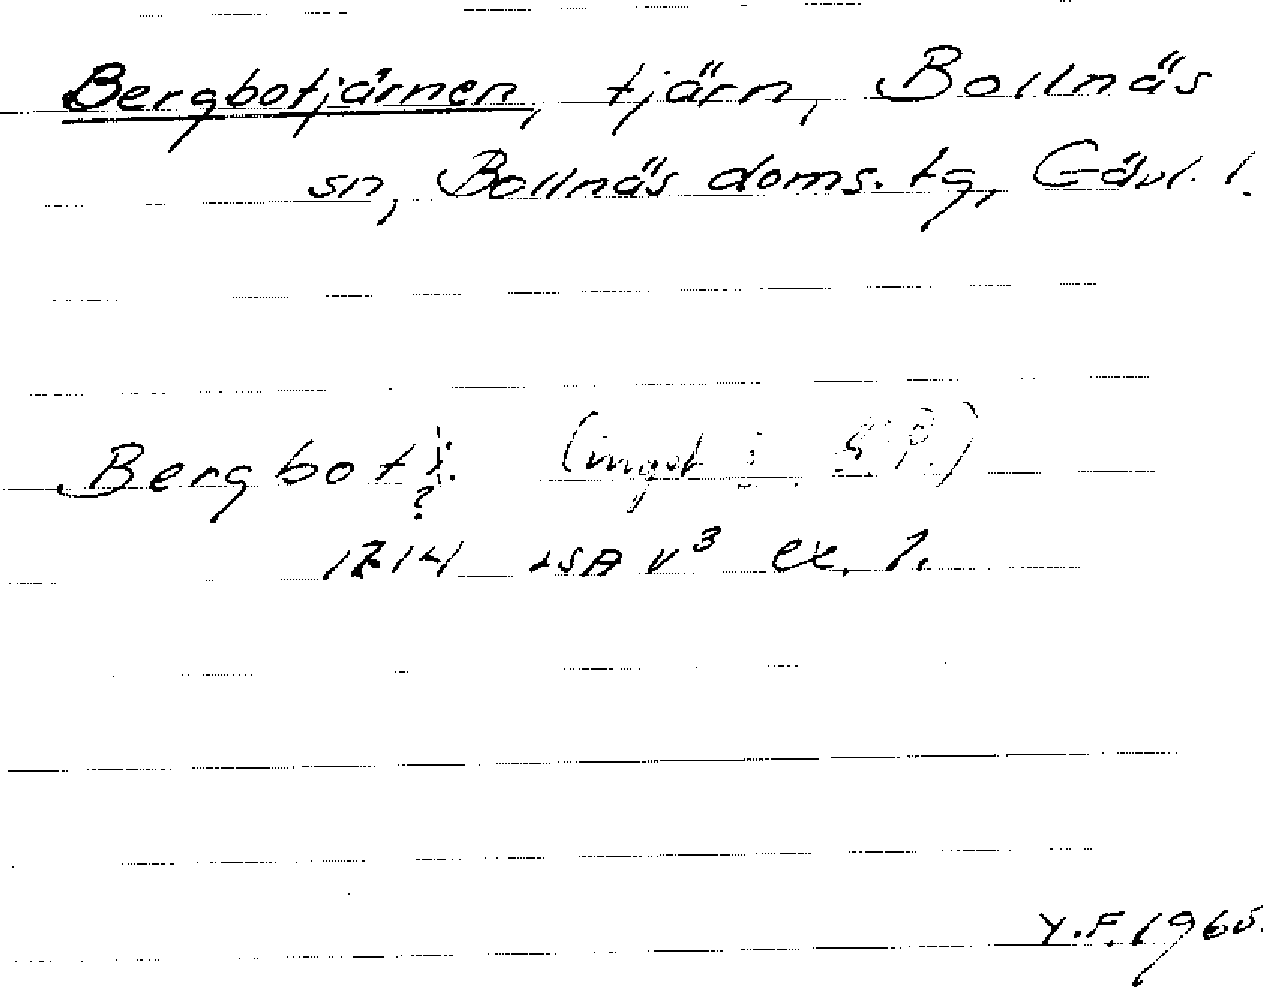 Bergbotjärnen, tjärn, Bollnäs
sn, Bollnäs doms. tg, Gävl. l.
Bergbot
?
1714 LSA v³ ex. 1.
Y.F. 1965.